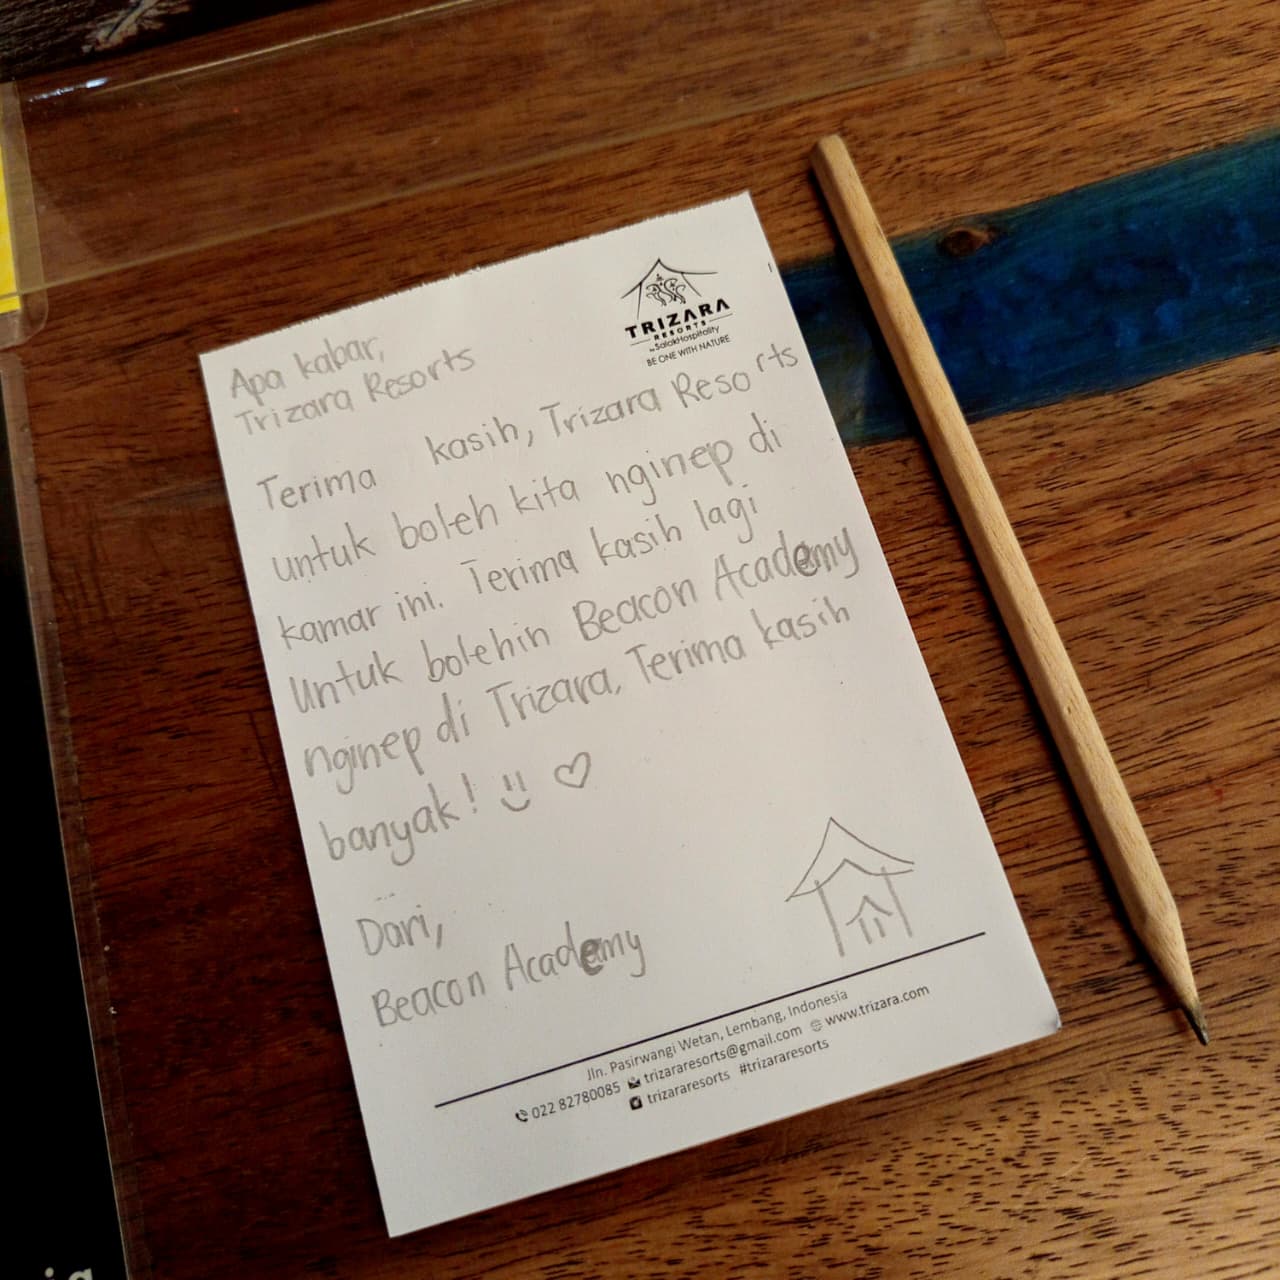 TRIZARA
RESORTS
by SalakHospitality
BE ONE WITH NATURE
Apa kabar,
Trizara Resorts
Terima kasih, Trizara Resorts
untuk boleh kita nginep di
kamar ini. Terima kasih lagi
untuk bolehin Beacon Academy
nginep di Trizara, Terima kasih
banyak!
Dari,
Beacon Academy
Jln. Pasirwangi Wetan, Lembang, Indonesia
022 82780085 trizararesorts@gmail.com www.trizara.com
trizararesorts #trizararesorts